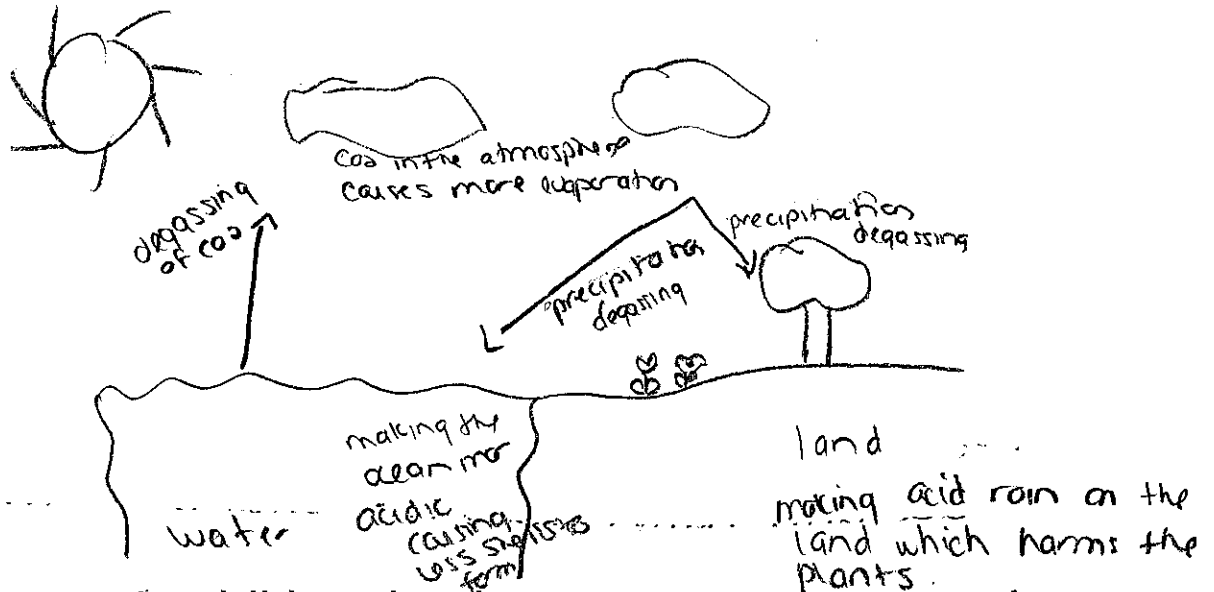 degassing
of CO2
CO2 in the atmosphere
causes more evaporation
precipitation
degassing
precipitation
degassing
making the
ocean mor
acidic
causing
less
form
water
land
making acid rain on the
land which harms the
plants.